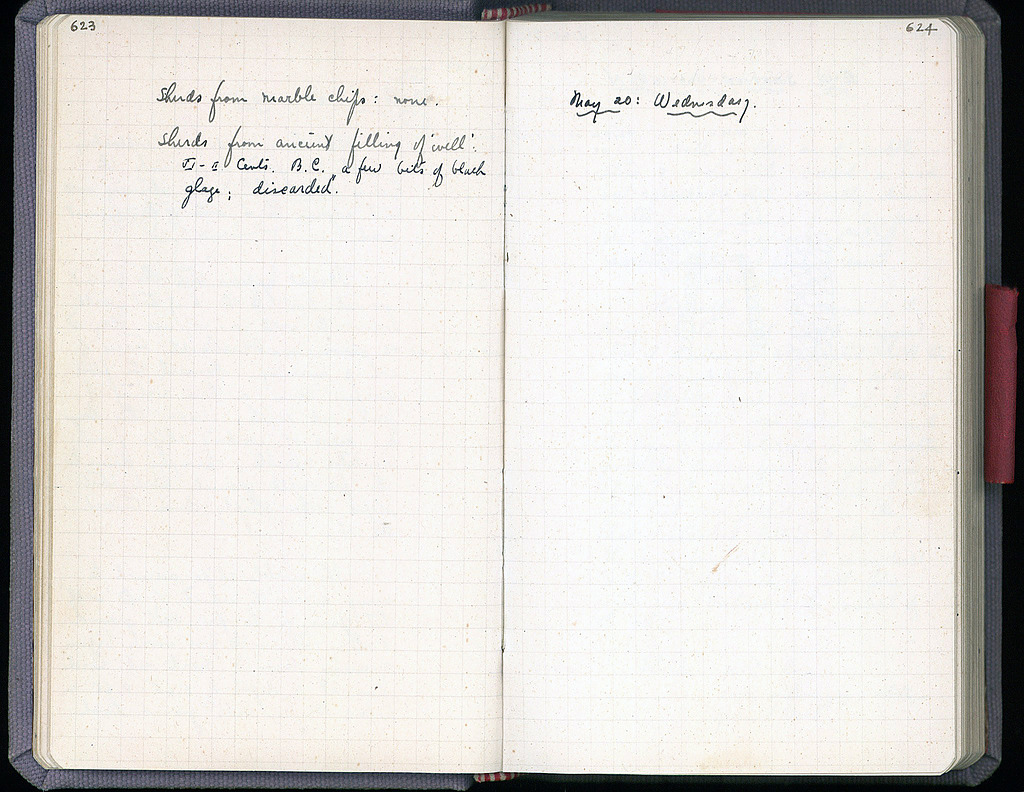 623
Sherds from marble chips: none.
Sherds from ancient filling of 'well':
II Cents. B.C., "a few bits of black
glaze; discarded".
624
May 20: Wednesday.